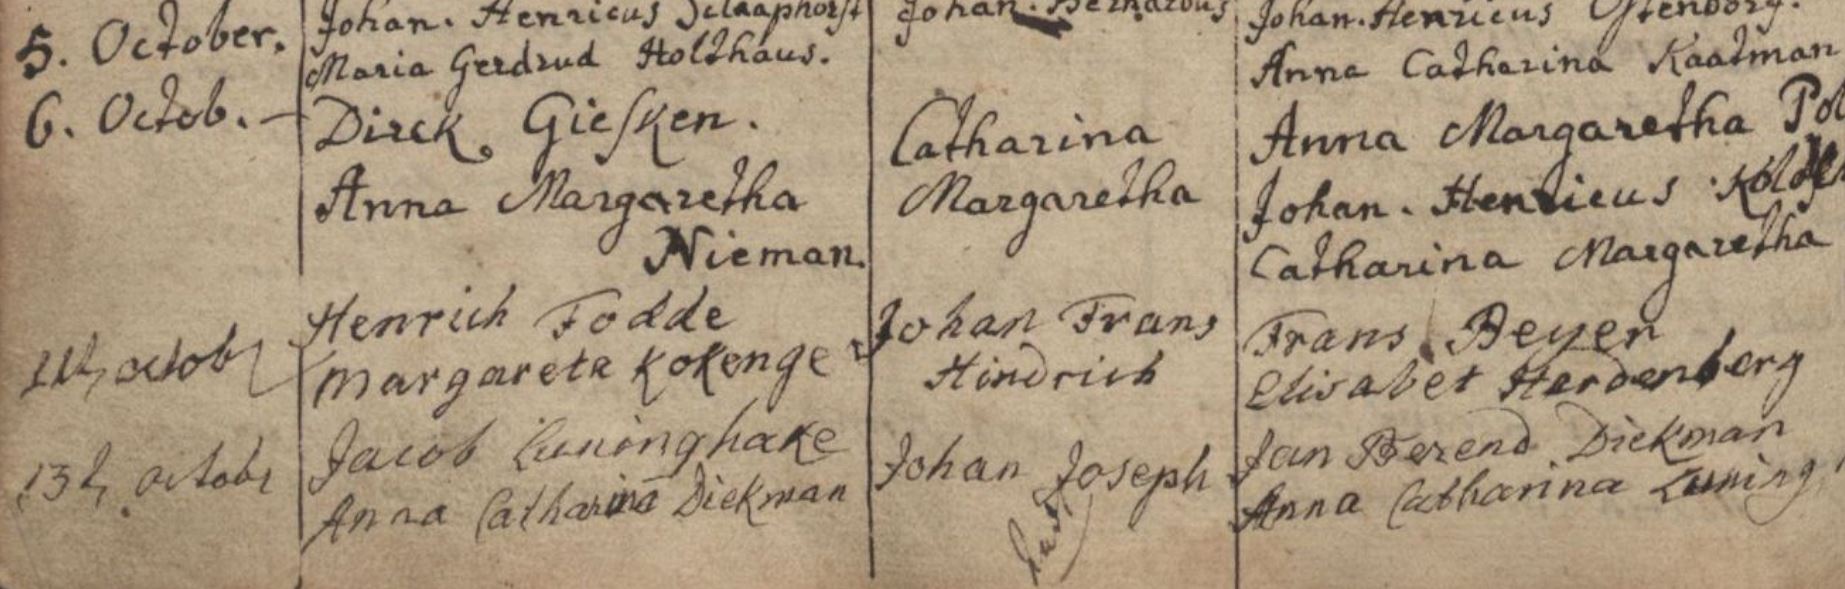 5. October. Johan. Henricus Schaaphorst Johan. Bernardus Johan. Henricus Ostenborg.
Maria Gerdrud Holthaus. Anna Catharina Kaatman
6. Octob. Dirck Giesken. Catharina Anna Margaretha
Anna Margaretha Margaretha Johan. Henricus
Nieman. Catharina Margaretha
Henrich Fodde Johan Frans Frans Beyer
11t octobr Margareta Kokenge Hindrich Elisabet Herdenberg
Jacob Luninghake Johan Joseph Jan Berend Diekman
13t octobr Anna Catharina Diekman Anna Catharina Luning